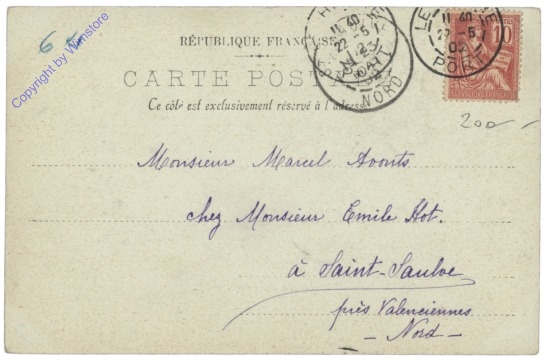 Copyright by Winstore
RÉPUBLIQUE FRANÇAISE
CARTE POSTALE
Ce côté est exclusivement réservé à l'adresse
10
NORD
PORT
200 -
Monsieur Marcel Avonts
chez Monsieur Emile Hot.
à Saint-Saulve
près Valenciennes
- Nord -